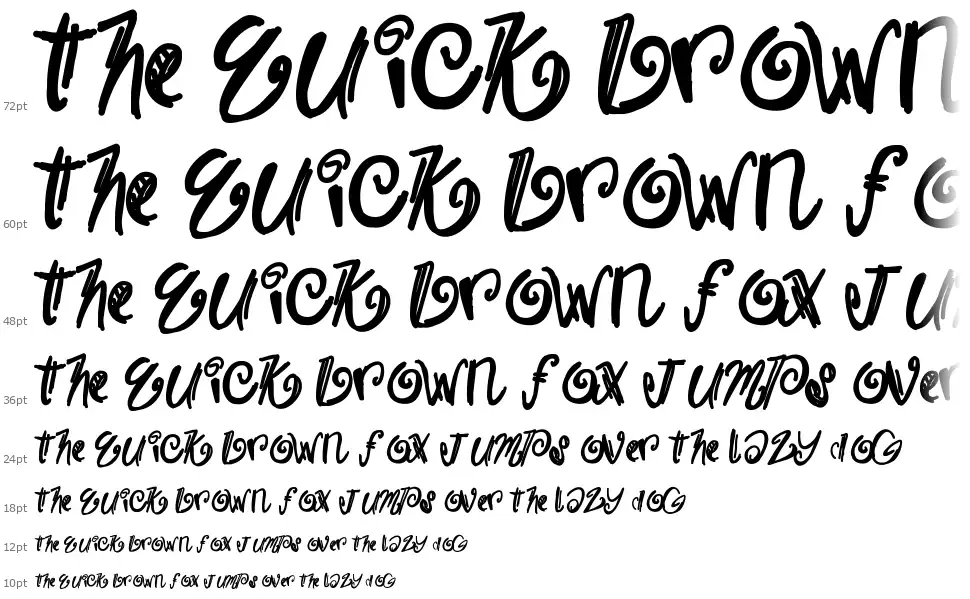 72pt the quick brown
60pt the quick brown fo
48pt the quick brown fox Ju
36pt the quick brown fox Jumps over
24pt the quick brown fox Jumps over the lazy dog
18pt the quick brown fox Jumps over the lazy dog
12pt the quick brown fox Jumps over the lazy dog
10pt the quick brown fox Jumps over the lazy dog